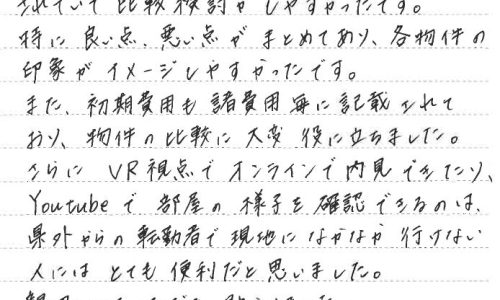 されていて比較検討がしやすかったです。
特に良い点、悪い点がまとめてあり、各物件の
印象がイメージしやすかったです。
また、初期費用も諸費用毎に記載されて
おり、物件の比較に大変役に立ちました。
さらにVR視点でオンラインで内見できたり、
Youtubeで部屋の様子を確認できるのは、
県外からの転勤者で現地になかなか行けない
人にはとても便利だと思いました。